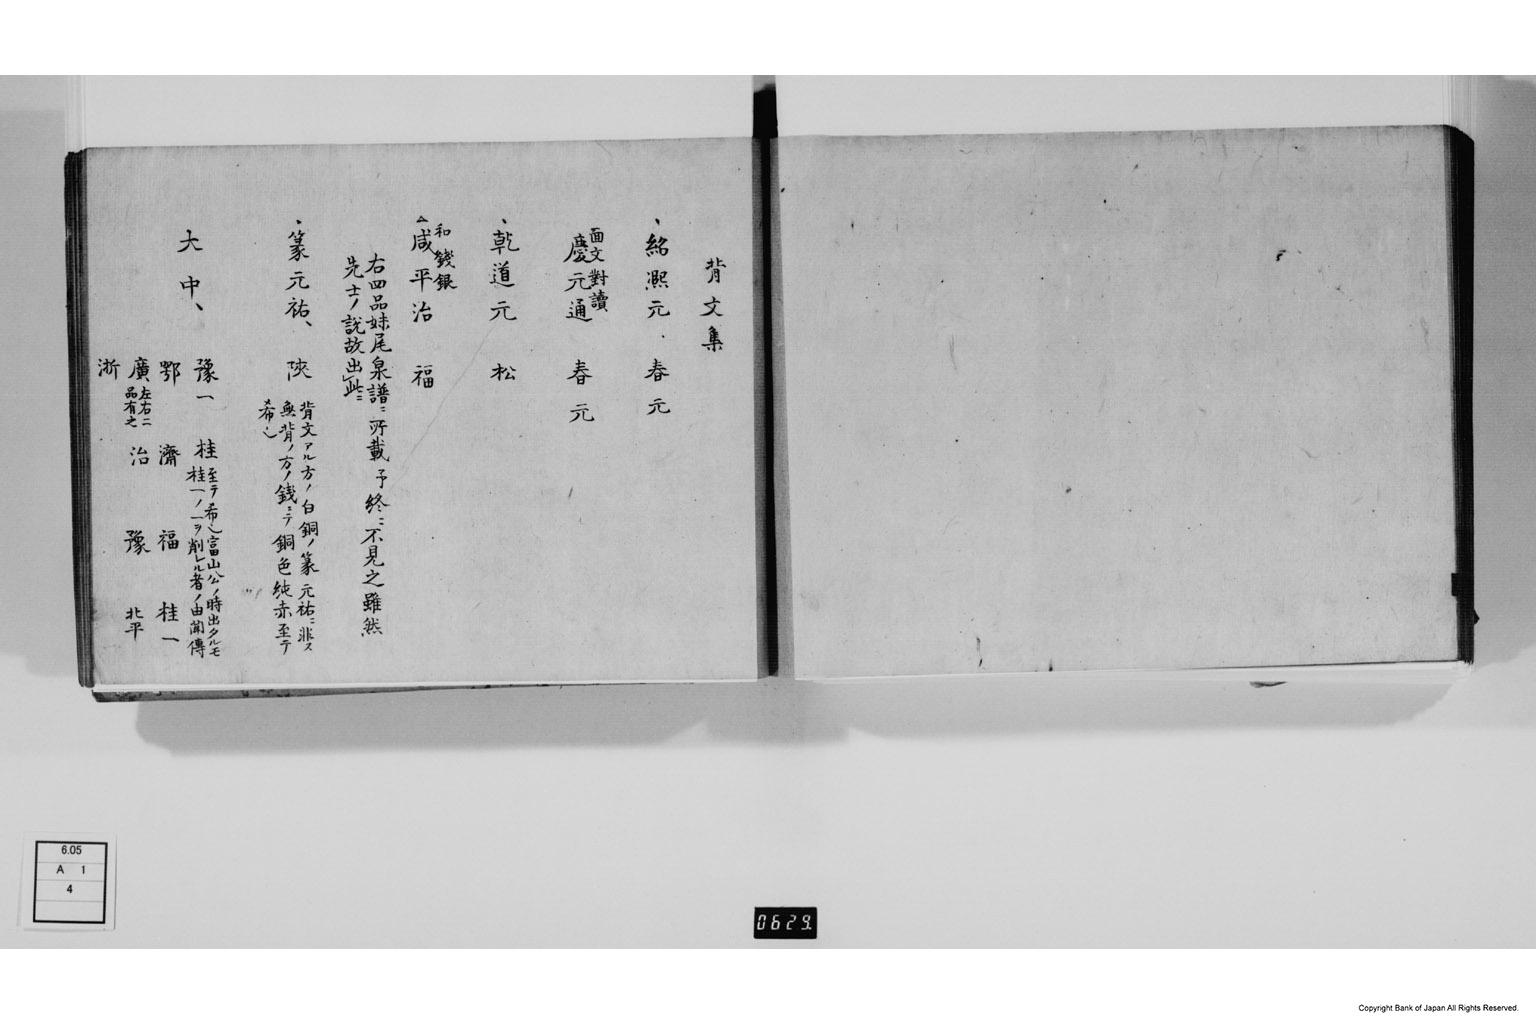 背文集
、紹熙元．　春元
面文對讀
慶元通　春元
、乾道元　松
和錢銀
△咸平治　福
右四品妹尾泉譜ニ所載予終ニ不見之雖然
先士ノ說故出此ニ
、篆元祐、　陝
背文アル方ノ白銅ノ篆元祐ニ非ス
無背ノ方ノ錢ニテ銅色純赤至テ
希也
大中、
豫一　桂
至テ希也富山公ノ時出タルモ
桂一ノ一ヲ削レル者ノ由聞傳
鄂　濟　福　桂一
廣　左右二品有之　治　豫　北平
浙
6.05
A 1
4
0629.
Copyright Bank of Japan All Rights Reserved.